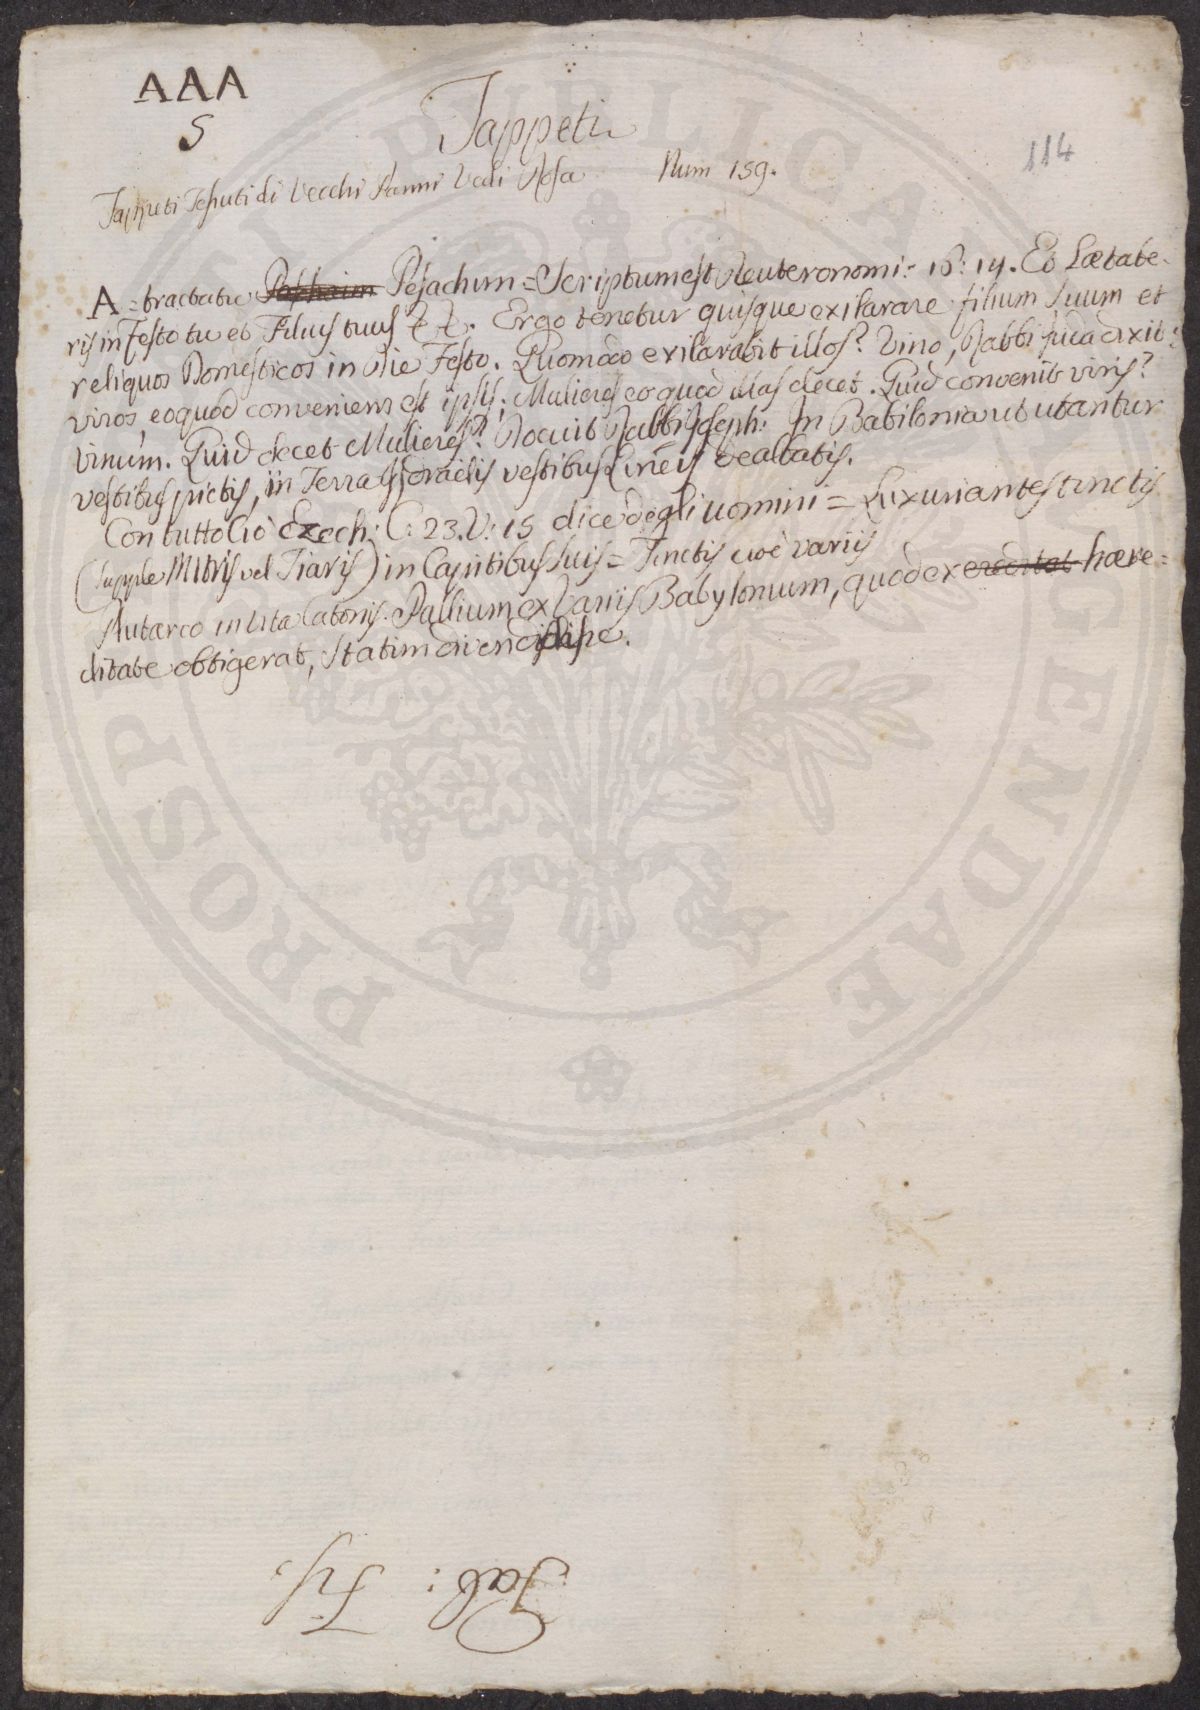 AAA
S
Tappeti
114
Tappeti Tessuti di Vecchi Panni Vedi Rosa Num 159.
A = tractatu Pesachim = Scriptum est Deuteronomi: 16: 14. Et Lætabe-
ris in Festo tu et Filius tuus &. &. Ergo tenetur quisque exilarare filium suum et
reliquos Domesticos in Die Festo. Quomodo exilarabit illos? Vino, Rabbi Juda dixit:
viros, eoquod conveniens est ipsis; Mulieres eo quod illas decet. Quid convenit viris?
vinum. Quid decet Mulieres? Docuit Rabbi Joseph: In Babilonia ut utantur
vestibus pictis, in Terra Israelis vestibus Lineis dealbatis.
Con tutto Ciò Ezech: C: 23. V: 15 dice degli uomini = Luxuriantes tinctis
(supple Mitris vel Tiaris) in Capitibus suis = Tinctis cioè variis
Plutarco in Vita Catonis. Pallium ex Variis Babylonium, quod ex ereditat hære=
ditate obtigerat, statim
Tab: Fy.
PROSPERITATI PUBLICAE AUGENDAE